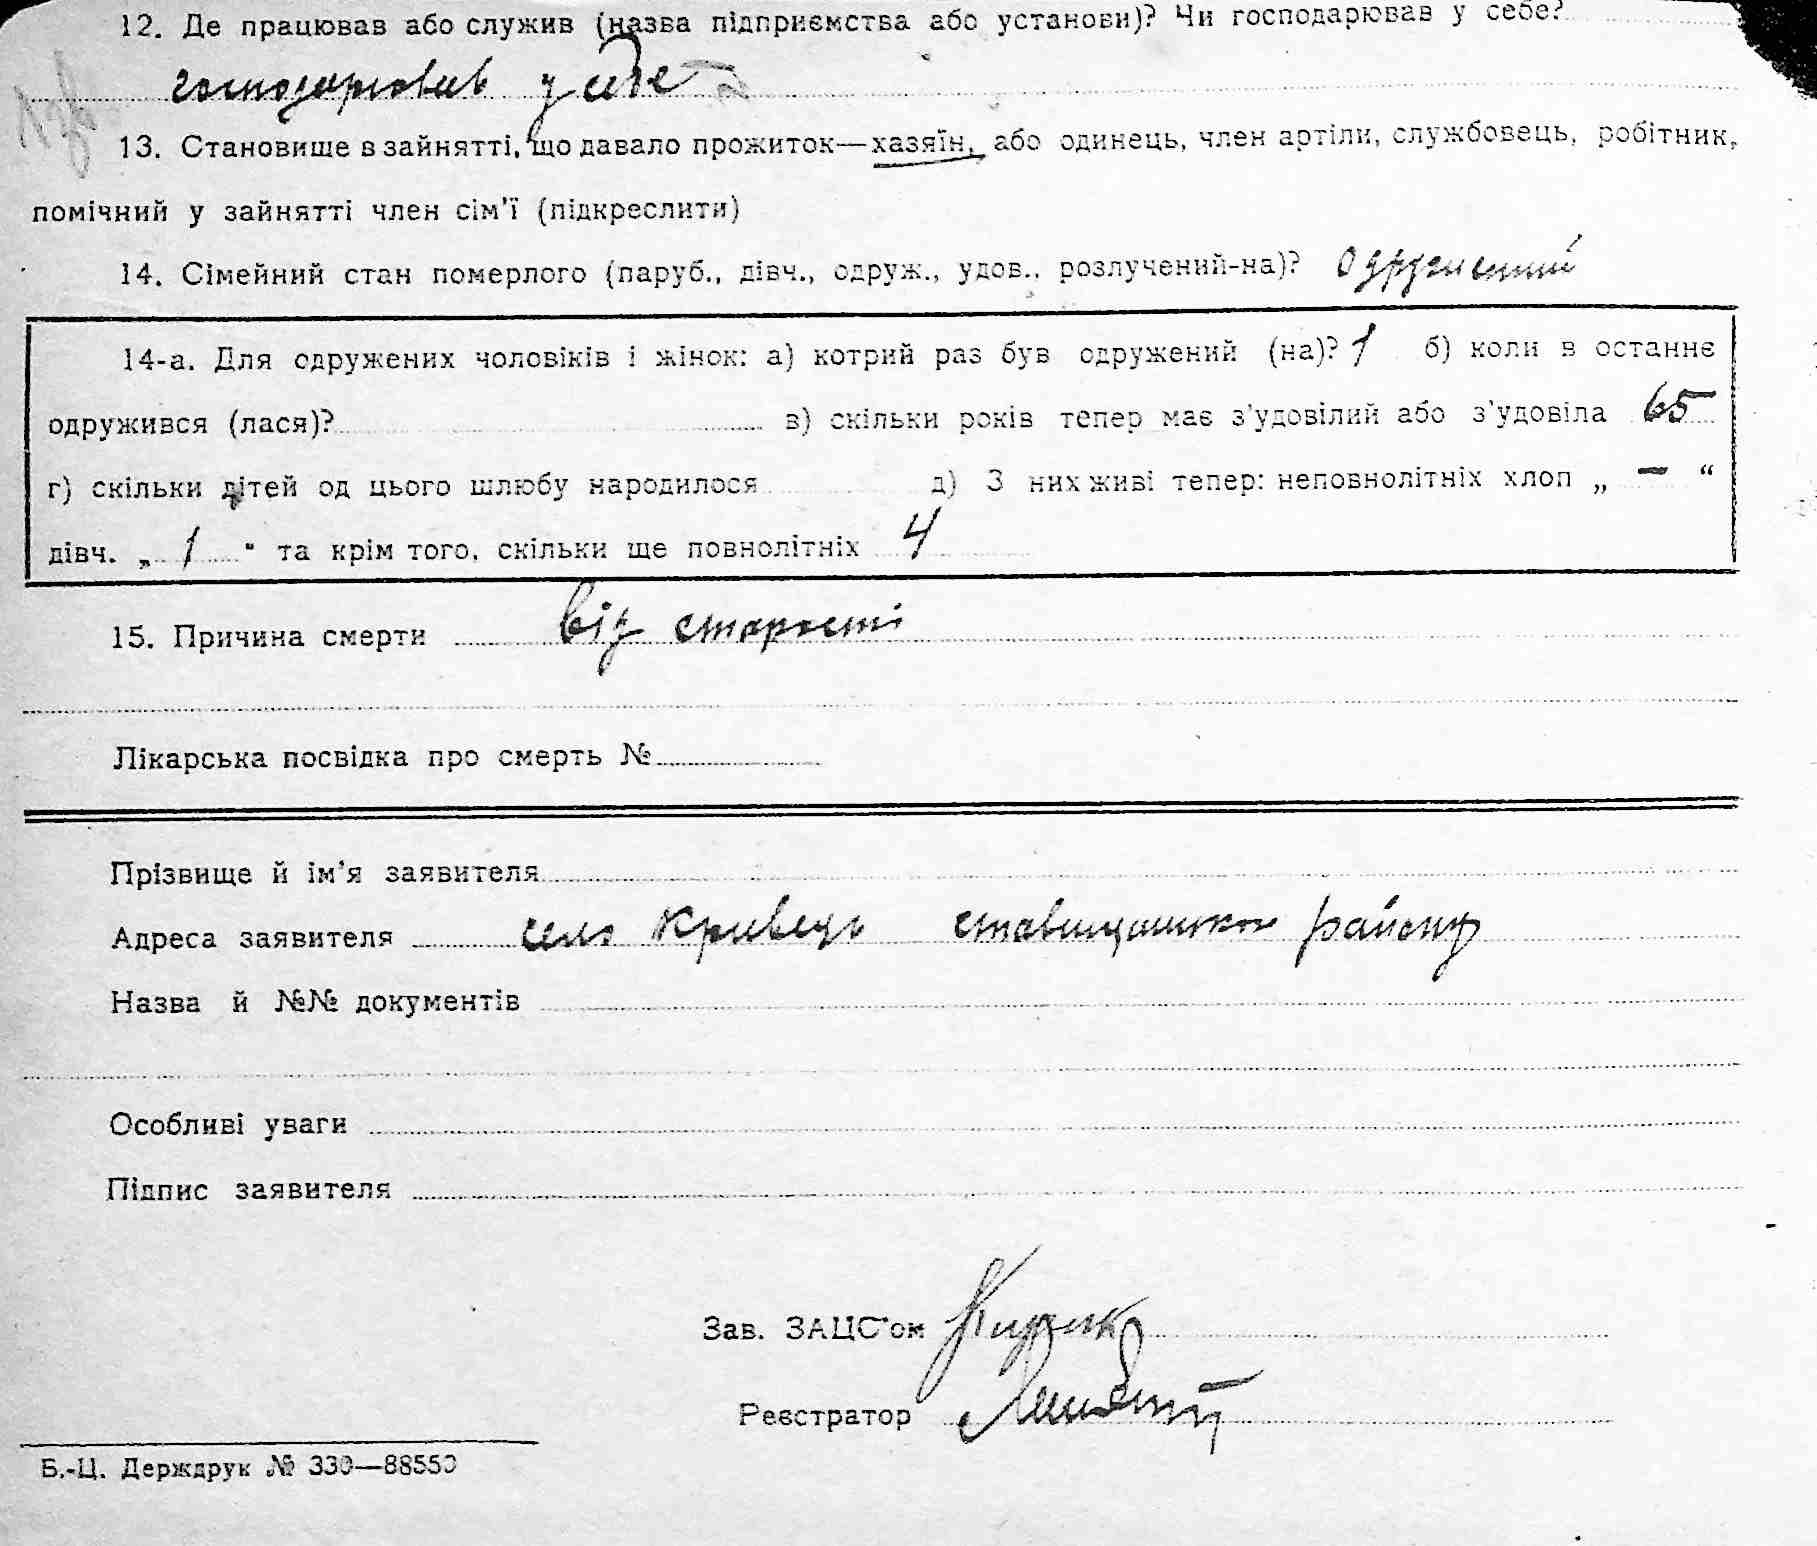 12. Де працював або служив (назва підприємства або установи)? Чи господарював у себе?
господарював у себе
13. Становище в зайнятті, що давало прожиток—хазяїн, або одинець, член артіли, службовець, робітник,
помічний у зайнятті член сім'ї (підкреслити)
14. Сімейний стан померлого (паруб., дівч., одруж., удов., розлучений-на)? одружений
14-а. Для одружених чоловіків і жінок: а) котрий раз був одружений (на)? 1 б) коли в останнє
одружився (лася)? в) скільки років тепер має з'удовілий або з'удовіла 65
г) скільки дітей од цього шлюбу народилося д) З них живі тепер: неповнолітніх хлоп „ — “
дівч. „ 1 “ та крім того, скільки ще повнолітніх 4
15. Причина смерти від старости
Лікарська посвідка про смерть №
Прізвище й ім'я заявителя
Адреса заявителя село Кривець ставищанського району
Назва й №№ документів
Особливі уваги
Підпис заявителя
Зав. ЗАЦС'ом
Реєстратор
Б.-Ц. Держдрук № 330—88550